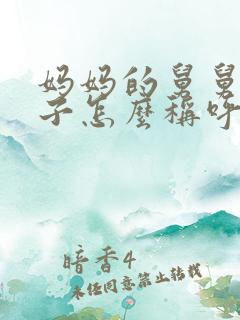 妈妈的舅舅
子怎麼稱呼
暗香4
未经同意禁止转载